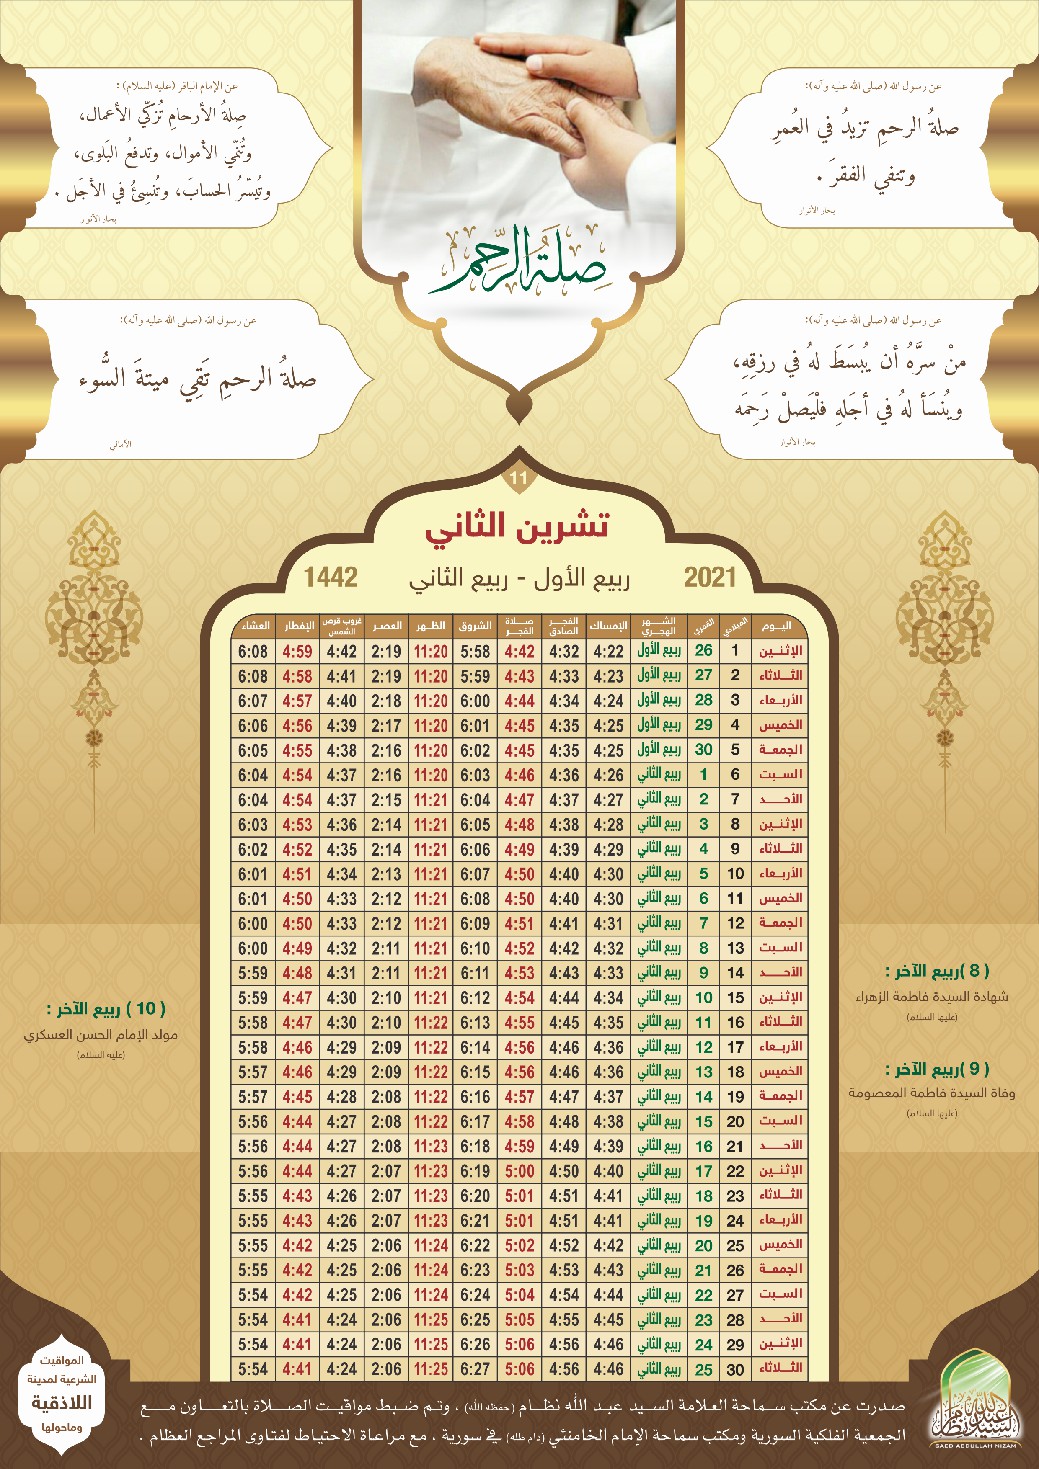 عن رسول الله (صلى الله عليه وآله):
صلةُ الرحمِ تزيدُ في العُمرِ
وتنفي الفقرَ .
بحار الأنوار
عن الإمام الباقر (عليه السلام) :
صِلةُ الأرحامِ تُزكّي الأعمال،
وتُنَمّي الأموال، وتدفعُ البَلوى،
وتُيسّرُ الحسابَ، وتُنسِئُ في الأجَل .
بحار الأنوار
صِلَةُ الرَّحِم
عن رسول الله (صلى الله عليه وآله):
منْ سرَّهُ أن يُبسَطَ لهُ في رزقِهِ،
ويُنسَأ لهُ في أجَلهِ فلْيَصلْ رَحِمَه
بحار الأنوار
عن رسول الله (صلى الله عليه وآله):
صلةُ الرحمِ تَقِي ميتةَ السُّوء
الأمالي
11
تشرين الثاني
2021 ربيع الأول - ربيع الثاني 1442
اليوم الميلادي القمري الشهر الهجري الإمساك الفجر الصادق صلاة الفجر الشروق الظهر العصر غروب قرص الشمس الإفطار العشاء
الإثنين 1 26 ربيع الأول 4:22 4:32 4:42 5:58 11:20 2:19 4:42 4:59 6:08
الثلاثاء 2 27 ربيع الأول 4:23 4:33 4:43 5:59 11:20 2:19 4:41 4:58 6:08
الأربعاء 3 28 ربيع الأول 4:24 4:34 4:44 6:00 11:20 2:18 4:40 4:57 6:07
الخميس 4 29 ربيع الأول 4:25 4:35 4:45 6:01 11:20 2:17 4:39 4:56 6:06
الجمعة 5 30 ربيع الأول 4:25 4:35 4:45 6:02 11:20 2:16 4:38 4:55 6:05
السبت 6 1 ربيع الثاني 4:26 4:36 4:46 6:03 11:20 2:16 4:37 4:54 6:04
الأحد 7 2 ربيع الثاني 4:27 4:37 4:47 6:04 11:21 2:15 4:37 4:54 6:04
الإثنين 8 3 ربيع الثاني 4:28 4:38 4:48 6:05 11:21 2:14 4:36 4:53 6:03
الثلاثاء 9 4 ربيع الثاني 4:29 4:39 4:49 6:06 11:21 2:14 4:35 4:52 6:02
الأربعاء 10 5 ربيع الثاني 4:30 4:40 4:50 6:07 11:21 2:13 4:34 4:51 6:01
الخميس 11 6 ربيع الثاني 4:30 4:40 4:50 6:08 11:21 2:12 4:33 4:50 6:01
الجمعة 12 7 ربيع الثاني 4:31 4:41 4:51 6:09 11:21 2:12 4:33 4:50 6:00
السبت 13 8 ربيع الثاني 4:32 4:42 4:52 6:10 11:21 2:11 4:32 4:49 6:00
الأحد 14 9 ربيع الثاني 4:33 4:43 4:53 6:11 11:21 2:11 4:31 4:48 5:59
الإثنين 15 10 ربيع الثاني 4:34 4:44 4:54 6:12 11:21 2:10 4:30 4:47 5:59
الثلاثاء 16 11 ربيع الثاني 4:35 4:45 4:55 6:13 11:22 2:10 4:30 4:47 5:58
الأربعاء 17 12 ربيع الثاني 4:36 4:46 4:56 6:14 11:22 2:09 4:29 4:46 5:58
الخميس 18 13 ربيع الثاني 4:36 4:46 4:56 6:15 11:22 2:09 4:29 4:46 5:57
الجمعة 19 14 ربيع الثاني 4:37 4:47 4:57 6:16 11:22 2:08 4:28 4:45 5:57
السبت 20 15 ربيع الثاني 4:38 4:48 4:58 6:17 11:22 2:08 4:27 4:44 5:56
الأحد 21 16 ربيع الثاني 4:39 4:49 4:59 6:18 11:23 2:08 4:27 4:44 5:56
الإثنين 22 17 ربيع الثاني 4:40 4:50 5:00 6:19 11:23 2:07 4:27 4:44 5:56
الثلاثاء 23 18 ربيع الثاني 4:41 4:51 5:01 6:20 11:23 2:07 4:26 4:43 5:55
الأربعاء 24 19 ربيع الثاني 4:41 4:51 5:01 6:21 11:23 2:07 4:26 4:43 5:55
الخميس 25 20 ربيع الثاني 4:42 4:52 5:02 6:22 11:24 2:06 4:25 4:42 5:55
الجمعة 26 21 ربيع الثاني 4:43 4:53 5:03 6:23 11:24 2:06 4:25 4:42 5:55
السبت 27 22 ربيع الثاني 4:44 4:54 5:04 6:24 11:24 2:06 4:25 4:42 5:54
الأحد 28 23 ربيع الثاني 4:45 4:55 5:05 6:25 11:25 2:06 4:24 4:41 5:54
الإثنين 29 24 ربيع الثاني 4:46 4:56 5:06 6:26 11:25 2:06 4:24 4:41 5:54
الثلاثاء 30 25 ربيع الثاني 4:46 4:56 5:06 6:27 11:25 2:06 4:24 4:41 5:54
( 8 )ربيع الآخر :
شهادة السيدة فاطمة الزهراء
(عليها السلام)
( 9 )ربيع الآخر :
وفاة السيدة فاطمة المعصومة
(عليها السلام)
( 10 ) ربيع الآخر :
مولد الإمام الحسن العسكري
(عليه السلام)
المواقيت
الشرعية لمدينة
اللاذقية
وماحولها
صدرت عن مكتب سماحة العلامة السيد عبد الله نظام (حفظه الله) ، وتم ضبط مواقيت الصلاة بالتعاون مع
الجمعية الفلكية السورية ومكتب سماحة الإمام الخامنئي (دام ظله) في سورية ، مع مراعاة الاحتياط لفتاوى المراجع العظام .
السيد عبدالله نظام
SAED ABDULLAH NIZAM